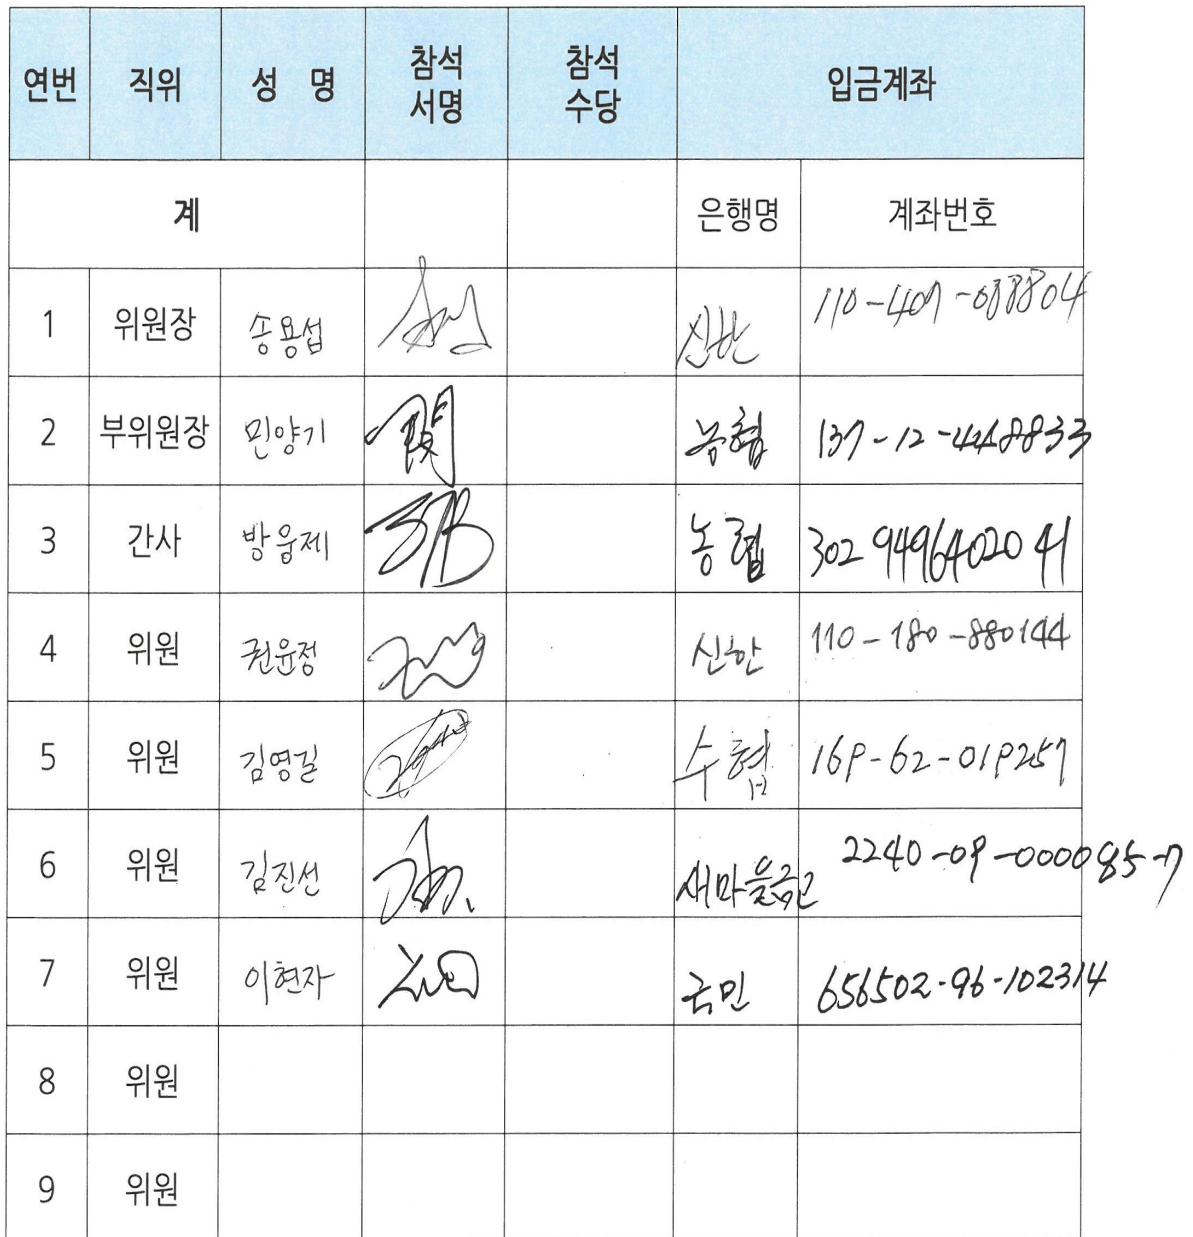 연번 직위 성 명 참석 서명 참석 수당 입금계좌
계 은행명 계좌번호
1 위원장 송용섭 신한
2 부위원장 민양기 閔 농협
3 간사 방웅제 농협 302 9496402041
4 위원 권윤정 신한 110-180-880144
5 위원 김영길 수협 169-62-019257
6 위원 김진선 새마을금고 2240-09-000085-7
7 위원 이현자 국민 656502-96-102314
8 위원
9 위원